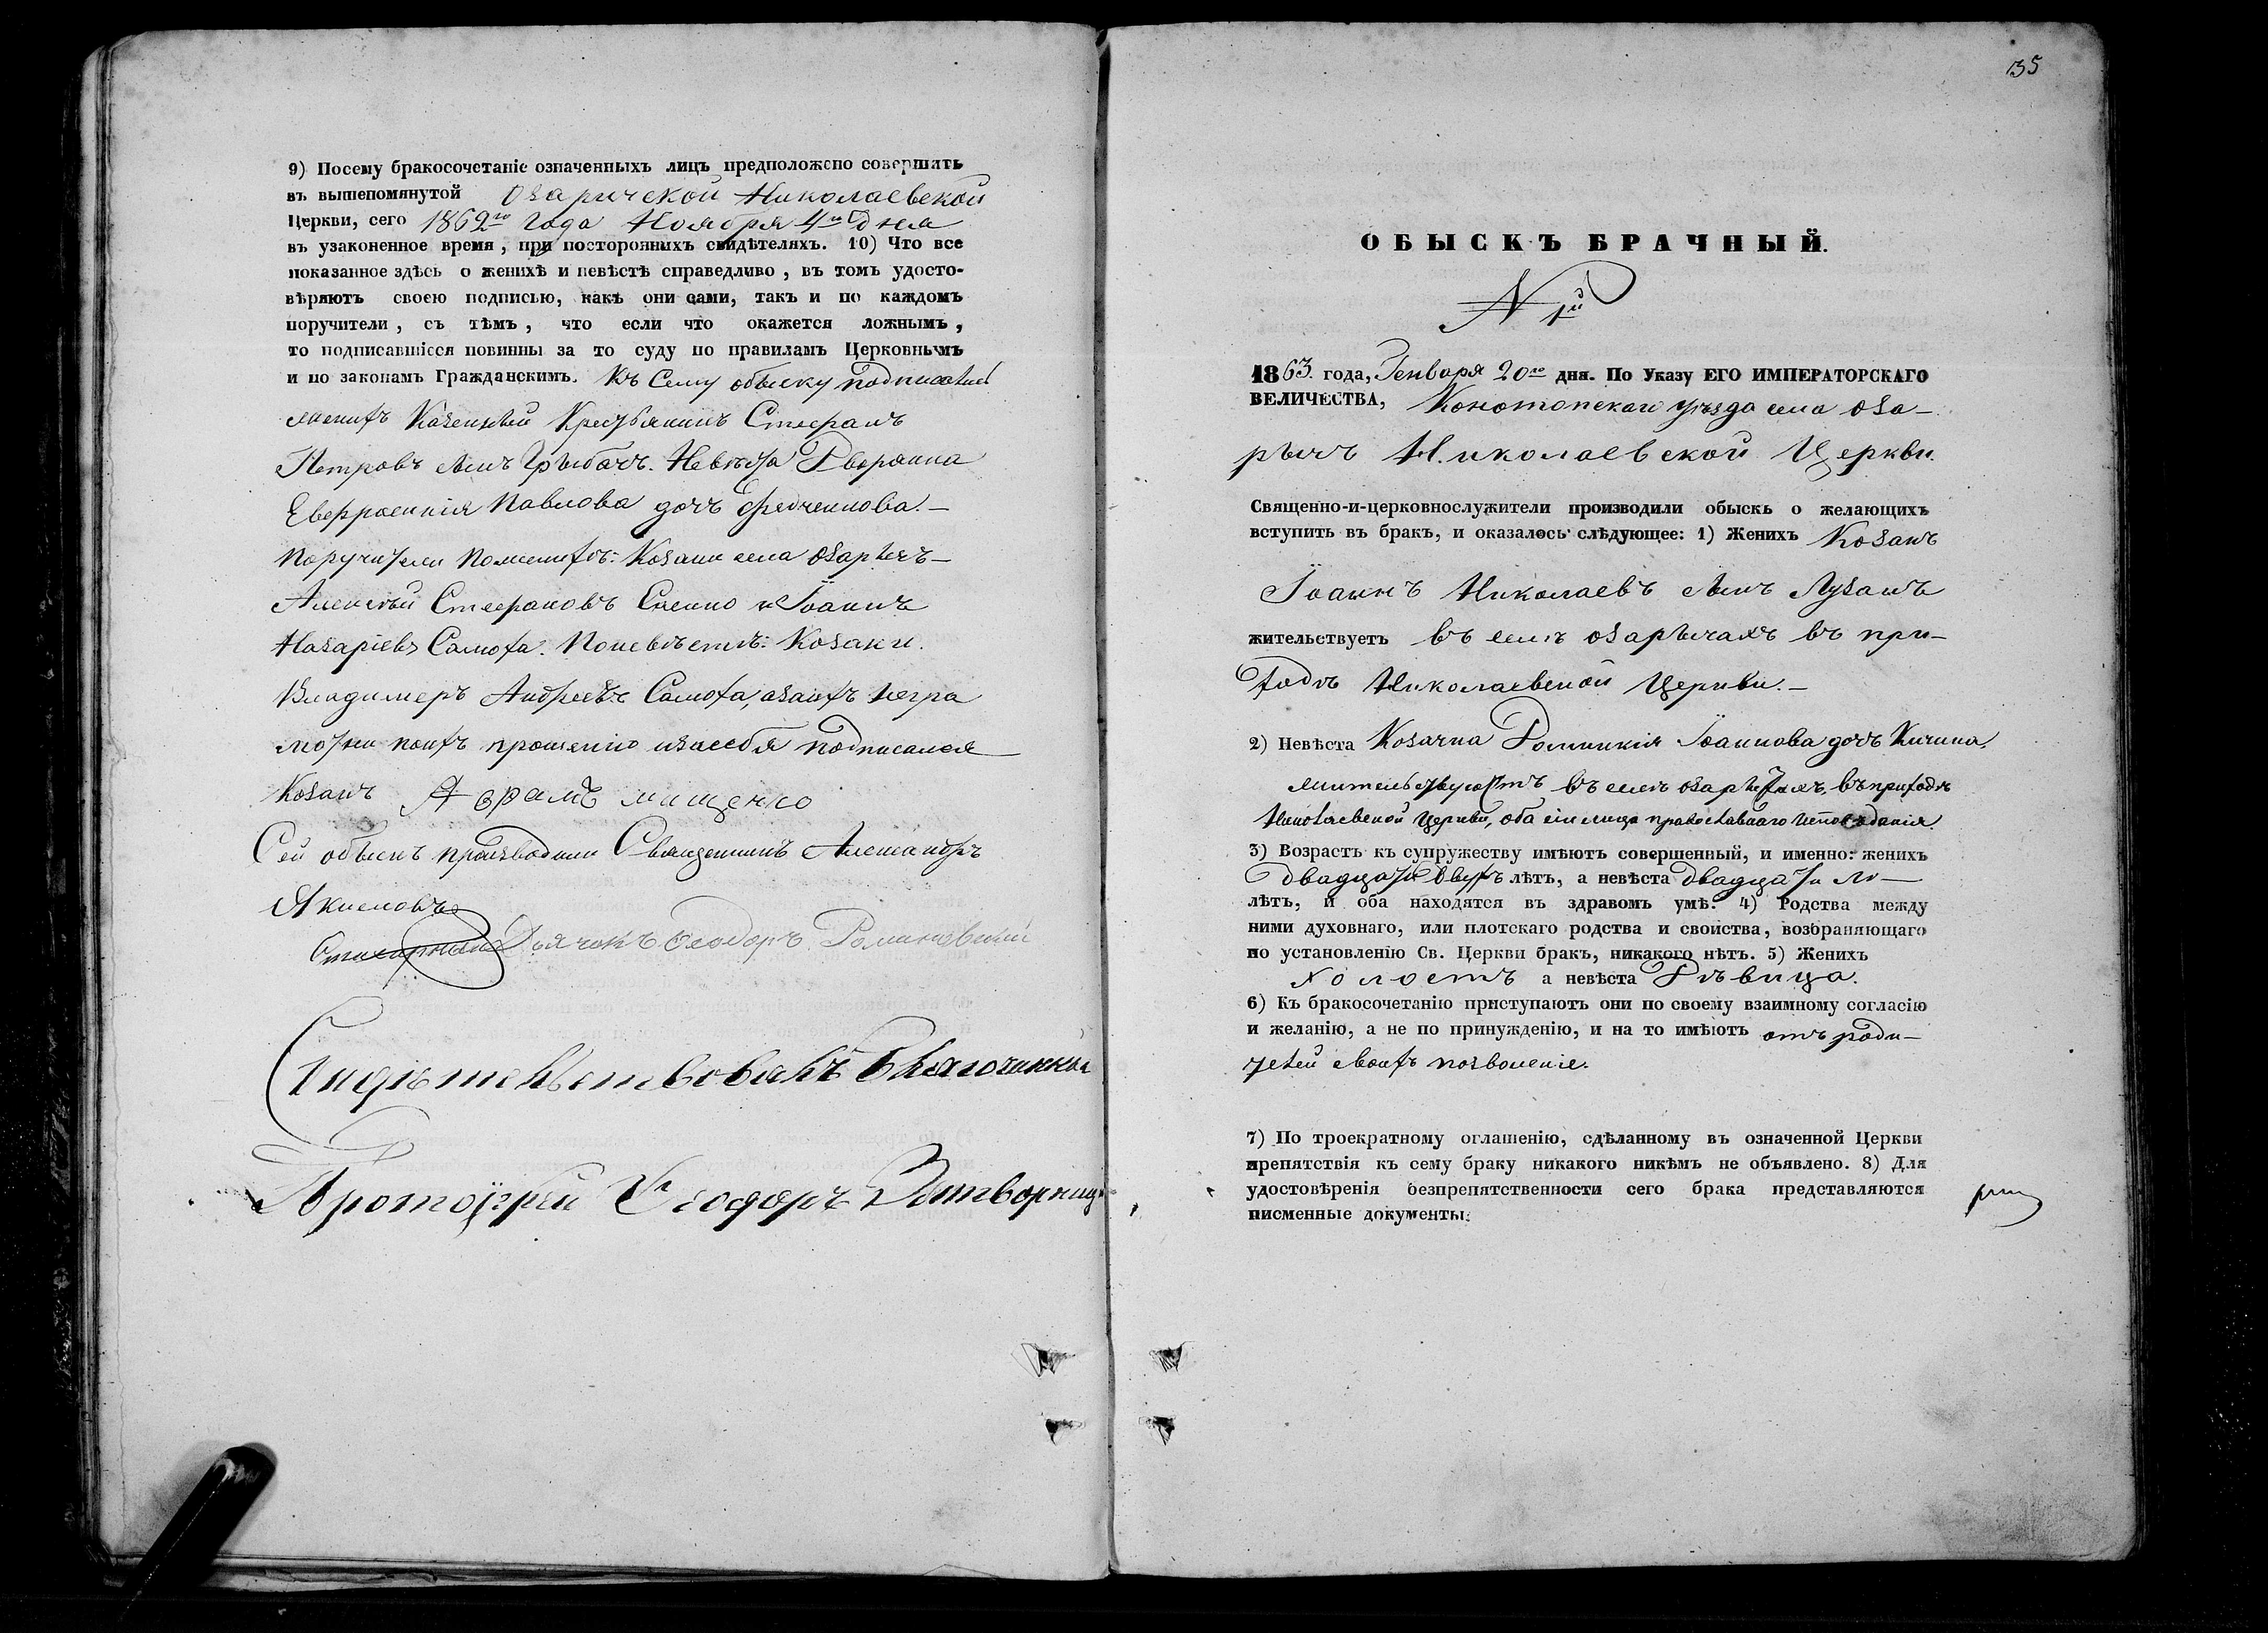 9) Посему бракосочетаніе означенныхъ лицъ предположено совершить
въ вышепомянутой Озарической Николаевской
Церкви, сего 1862го года Ноября 4го дня
въ узаконенное время, при постороннихъ свидѣтеляхъ. 10) Что все
показанное здѣсь о женихѣ и невѣстѣ справедливо, въ томъ удосто-
вѣряютъ своею подписью, какъ они сами, такъ и по каждомъ
поручители, съ тѣмъ, что если что окажется ложнымъ,
то подписавшіеся повинны за то суду по правиламъ Церковнымъ
и по законамъ Гражданскимъ. Къ Сему обыску
женихъ Казенный Крестьянинъ Стефанъ
Петровъ сынъ Грибачъ. Невѣста Дворянка
Павлова дочъ Федченкова.—
Поручители Поженихѣ: Козаки села Озаричъ—
Алексѣй Стефановъ и Іоаннъ
Назаріевъ Самоха. Поневѣстѣ: Козаки.
Владимеръ Андреевъ Самоха, азаихъ негра
мотни поихъ прошенію изасебя подписался
Козакъ Аврамъ мищенко
Сей обыскъ производили Священникъ Александръ
Дьячокъ Феодоръ Романовскій
Свидѣтельствовалъ Благочинный
Протоіерей Феодоръ
135
ОБЫСКЪ БРАЧНЫЙ.
N 1й
1863. года, Генваря 20го дня. По Указу ЕГО ИМПЕРАТОРСКАГО
ВЕЛИЧЕСТВА, Конотопскаго уѣзда села Оза-
рычъ Николаевской Церкви.
Священно-и-церковнослужители производили обыскъ о желающихъ
вступить въ бракъ, и оказалось слѣдующее: 1) Женихъ Козакъ
Іоаннъ Николаевъ сынъ Лузанъ
жительствуетъ въ селѣ Озарычахъ въ при-
ходѣ Николаевской Церкви.—
2) Невѣста Козачка Домникія Іоаннова дочъ
жительствуетъ въ селѣ Озарычахъ, въ приходѣ
Николаевской Церкви, оба сіи лица православнаго исповеданія.
3) Возрастъ къ супружеству имѣютъ совершенный, и именно: женихъ
двадцати двухъ лѣтъ, а невѣста двадцати
лѣтъ, и оба находятся въ здравомъ умѣ. 4) Родства между
ними духовнаго, или плотскаго родства и свойства, возбраняющаго
по установленію Св. Церкви бракъ, никакого нѣтъ. 5) Женихъ
холостъ а невѣста Дѣвица.
6) Къ бракосочетанію приступаютъ они по своему взаимному согласію
и желанію, а не по принужденію, и на то имѣютъ отъ роди-
телей своихъ позволеніе.
7) По троекратному оглашенію, сдѣланному въ означенной Церкви
препятствія къ сему браку никакого никѣмъ не объявлено. 8) Для
удостовѣренія безпрепятственности сего брака представляются
писменные документы: